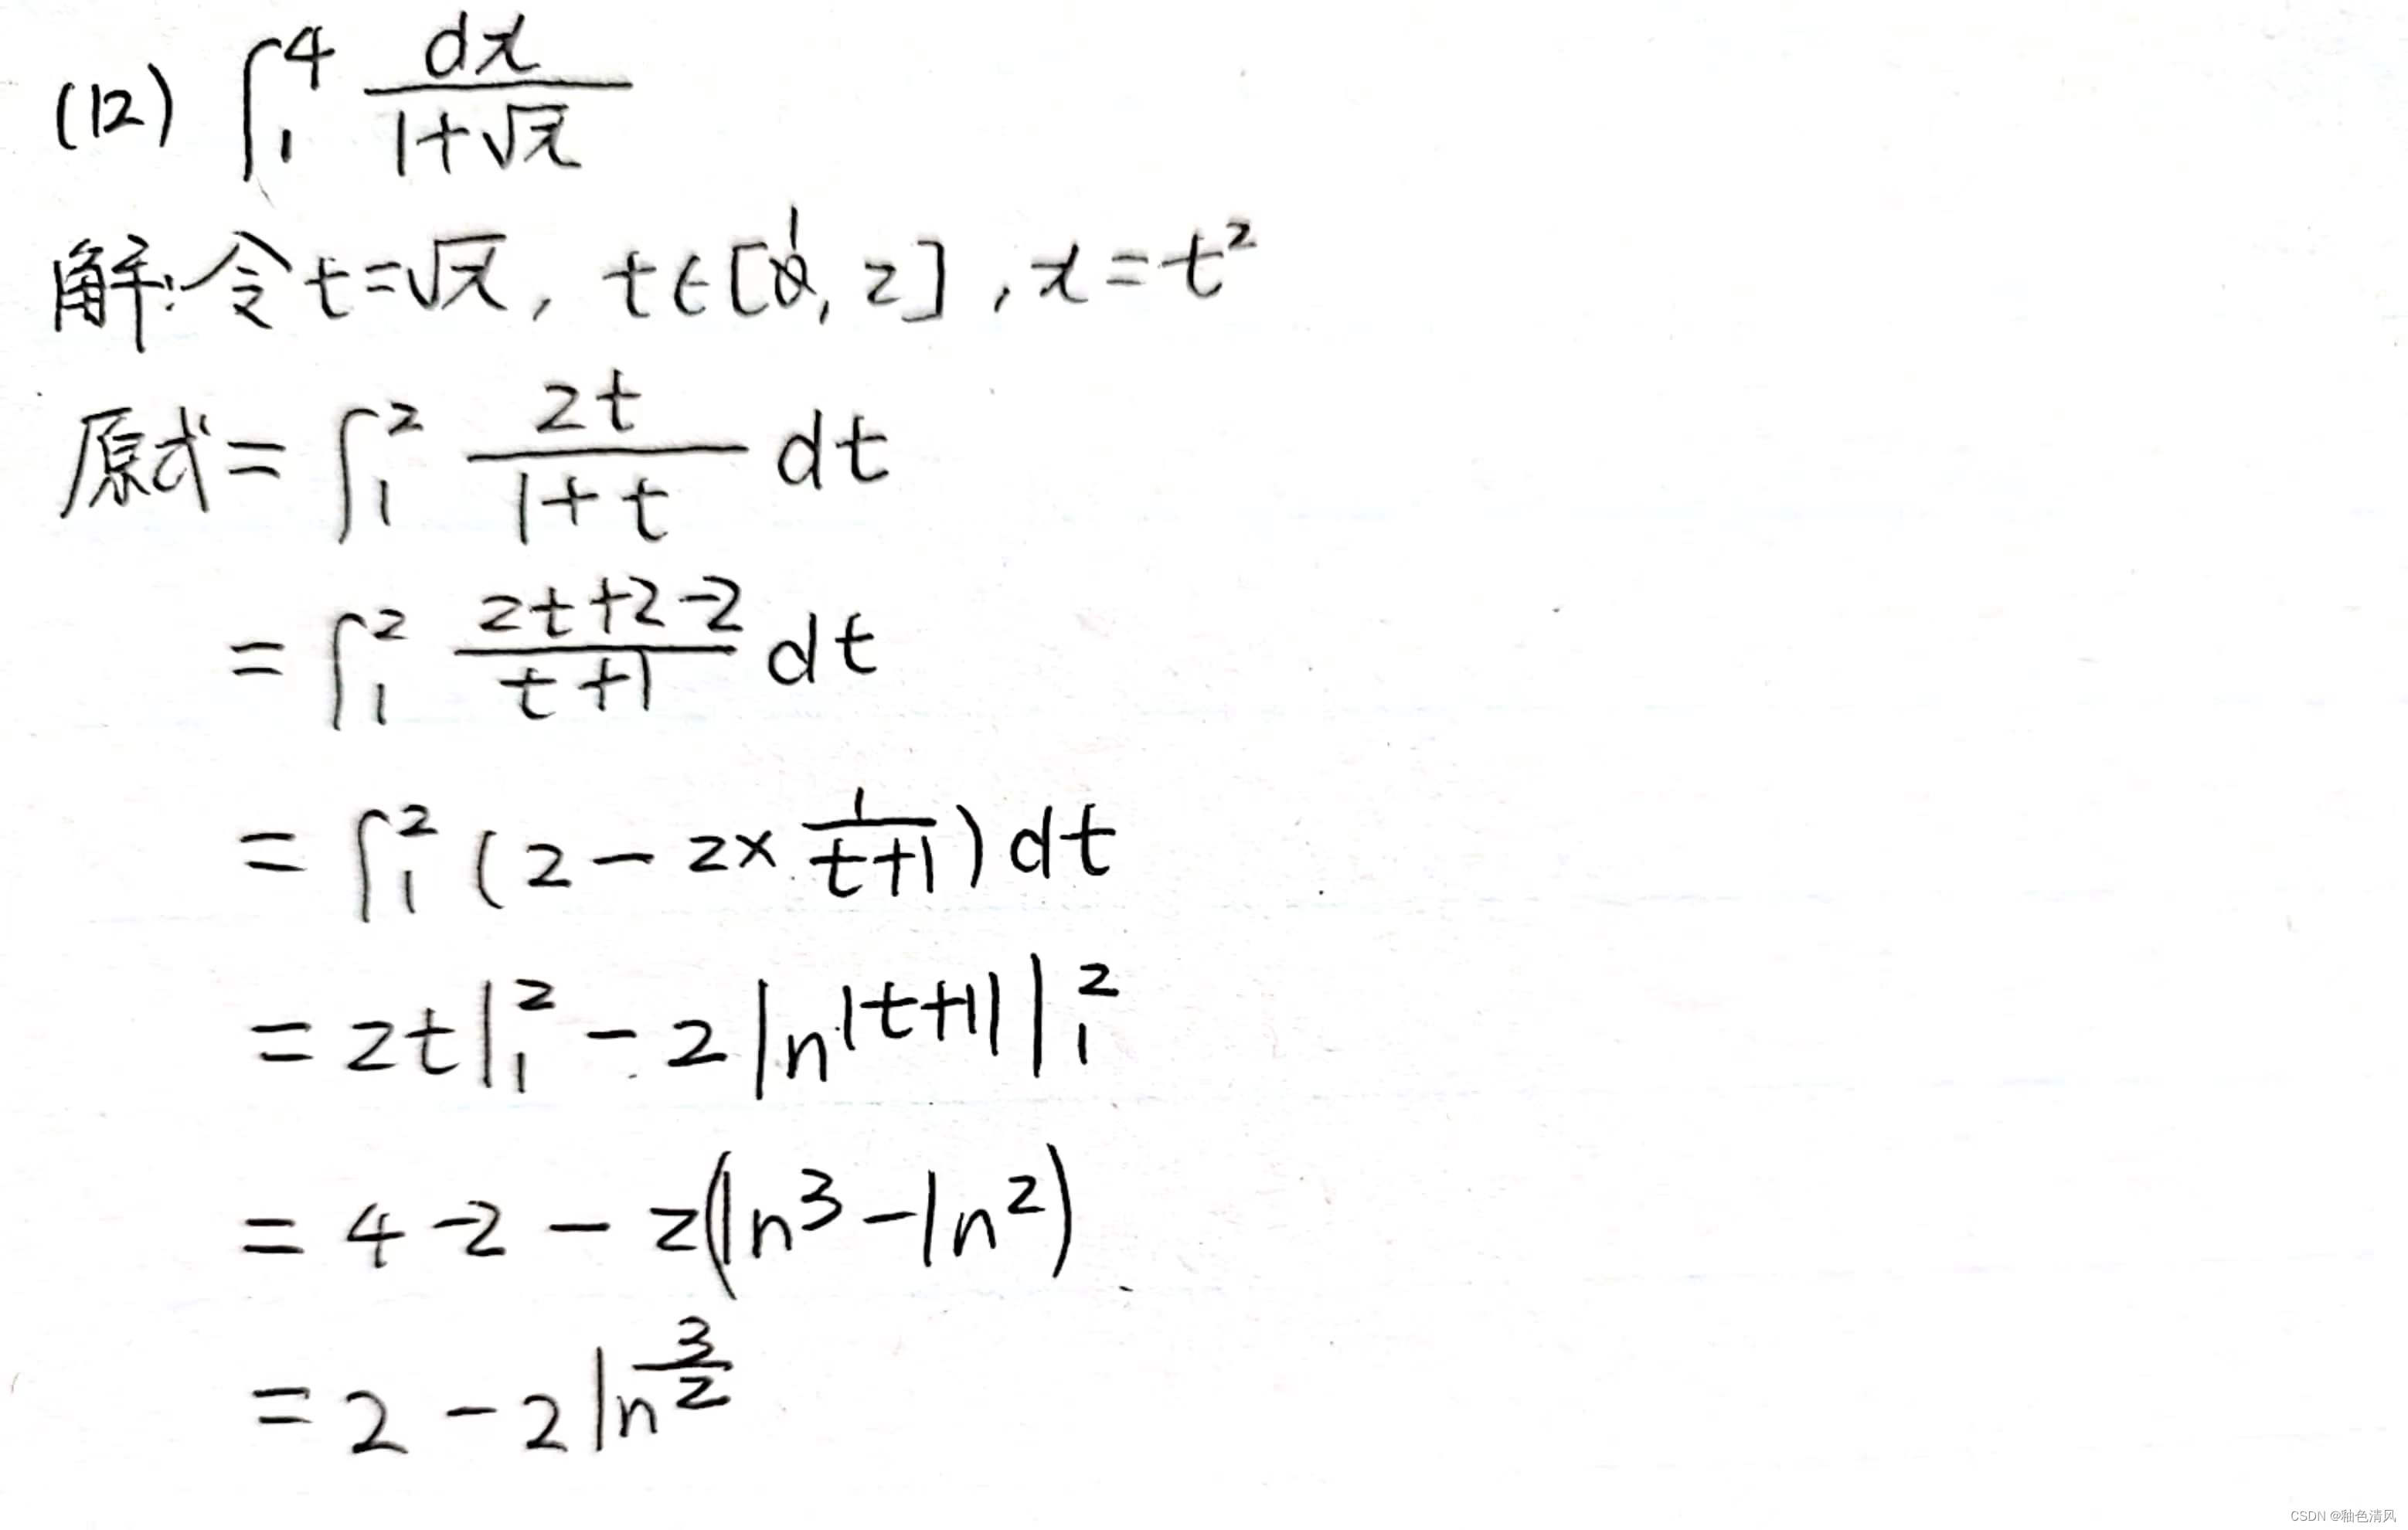 (12) ∫₁⁴ dx/(1+√x)
解:令t=√x, t∈[1, 2], x=t²
原式=∫₁² 2t/(1+t) dt
=∫₁² (2t+2-2)/(t+1) dt
=∫₁² (2-2×1/(t+1))dt
=2t|₁²-2ln|t+1||₁²
=4-2-2(ln3-ln2)
=2-2ln3/2
CSDN @釉色清风